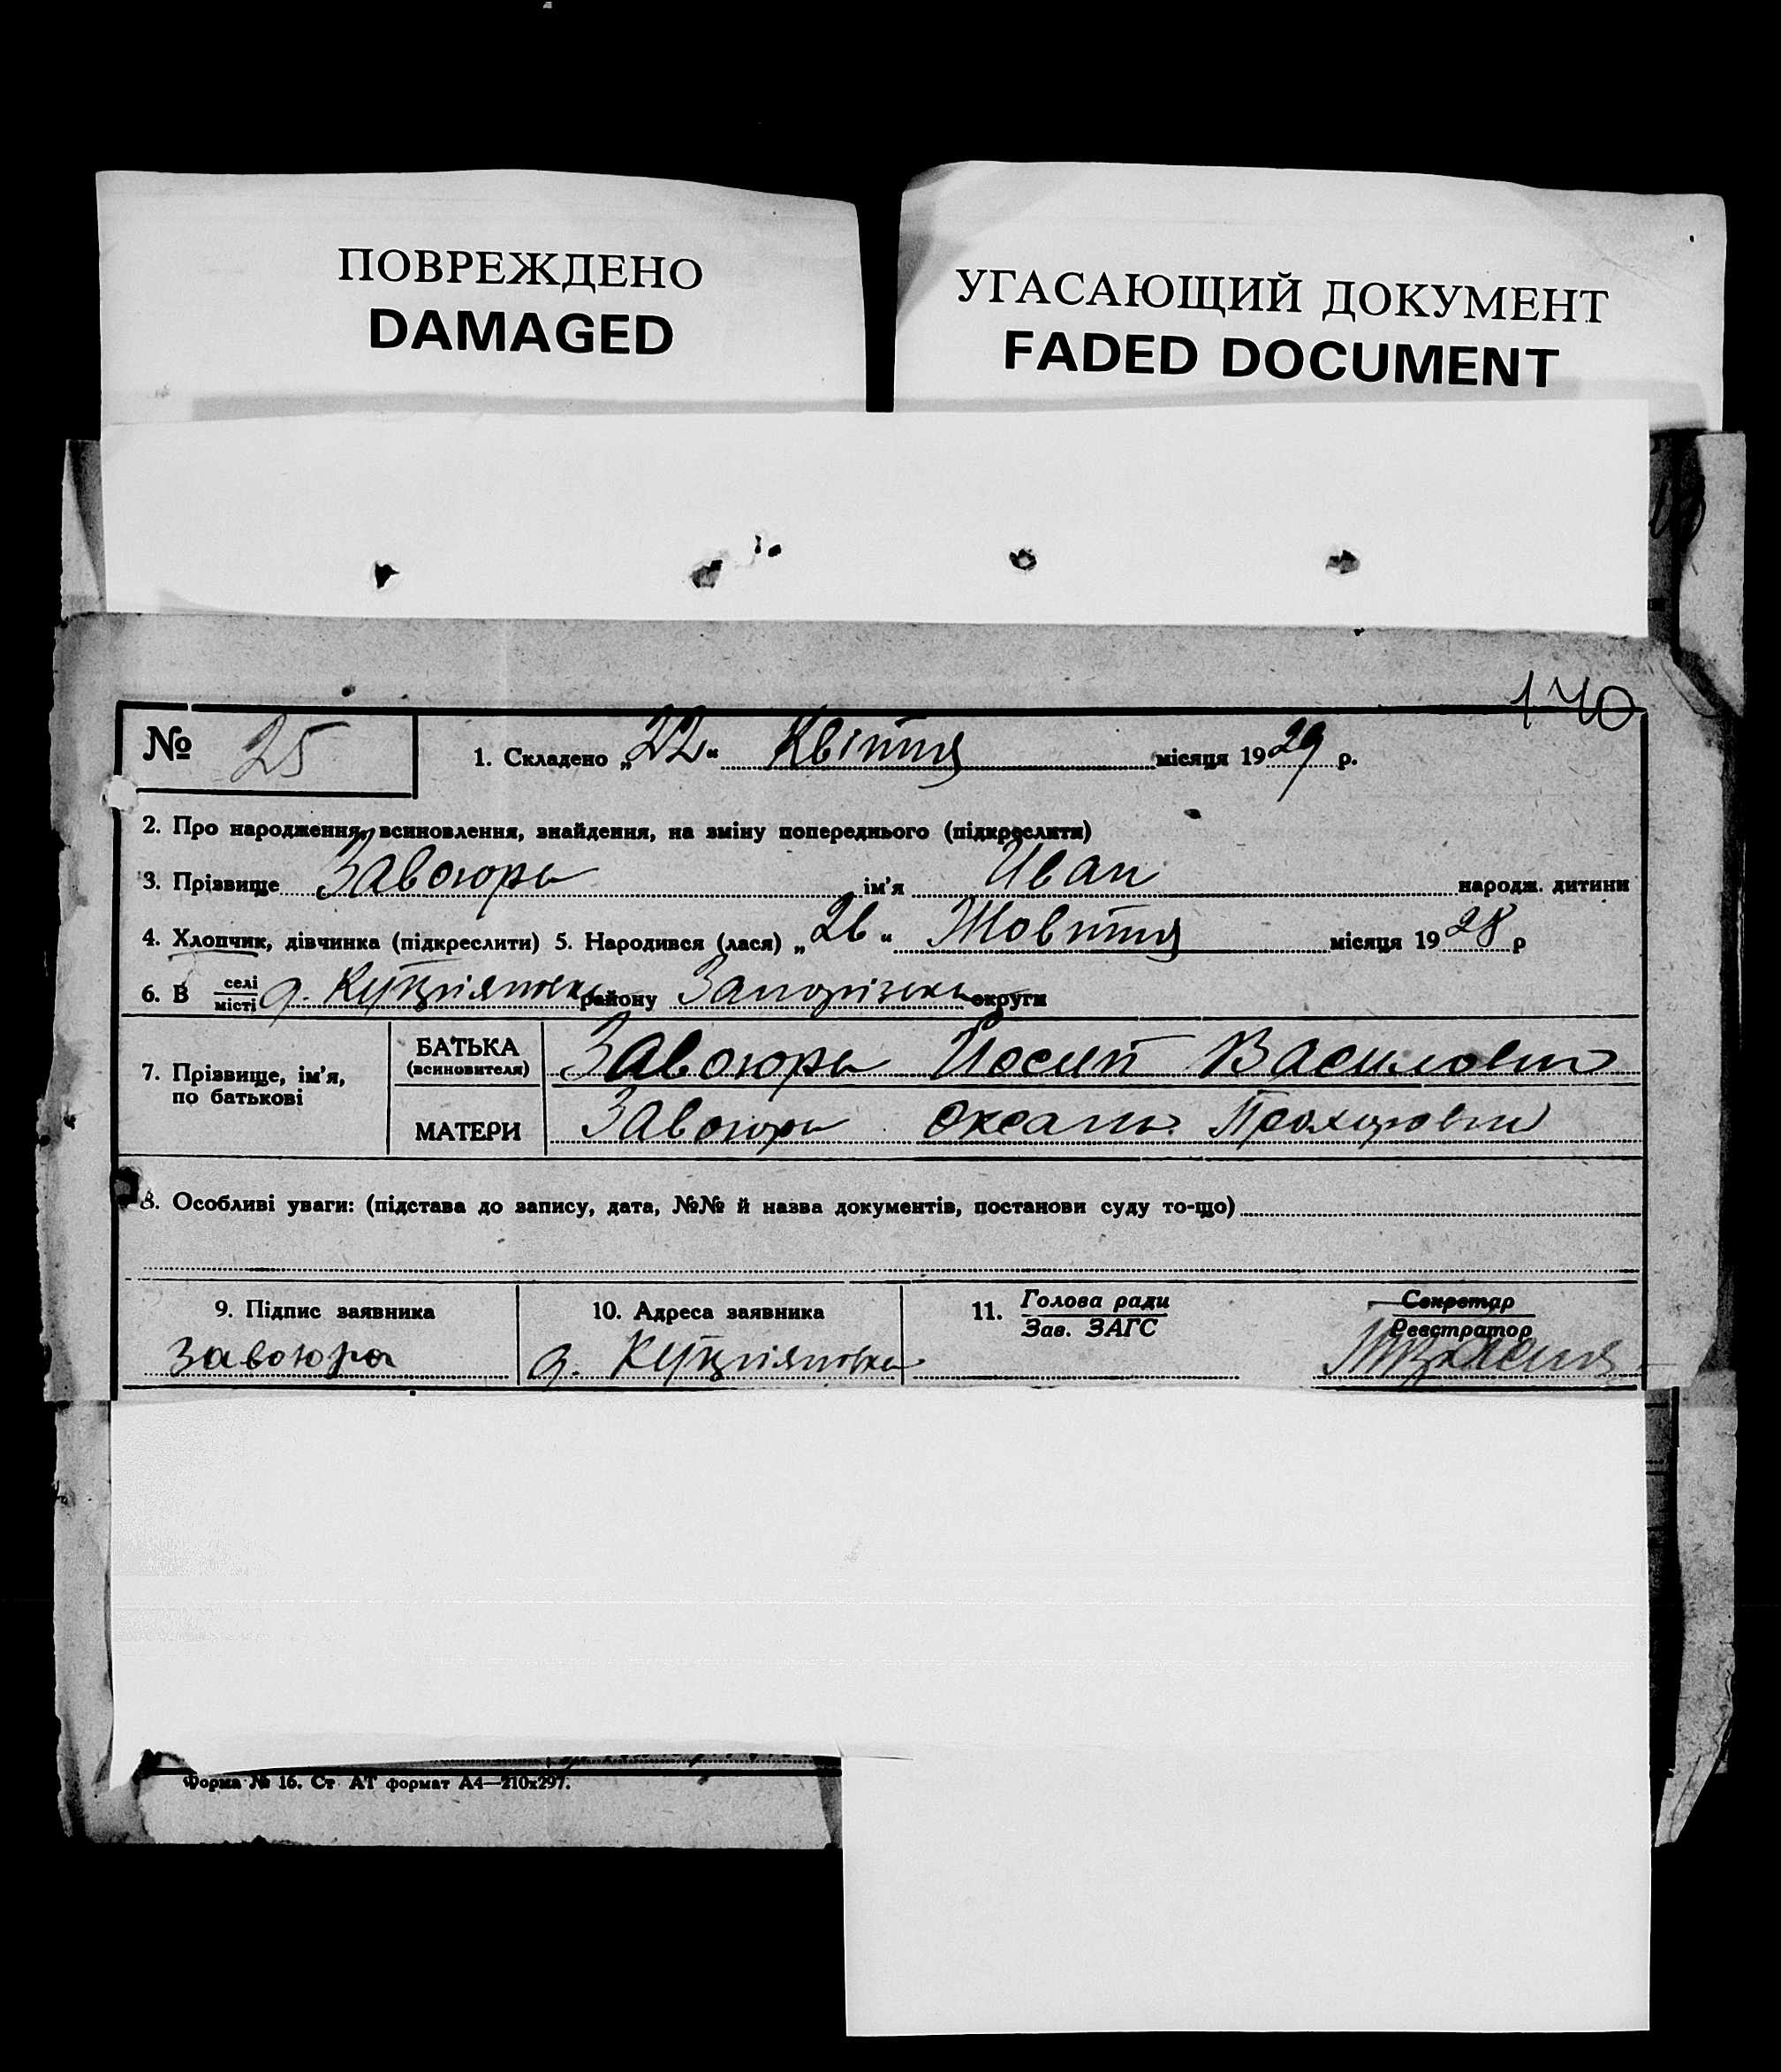 ПОВРЕЖДЕНО
DAMAGED
УГАСАЮЩИЙ ДОКУМЕНТ
FADED DOCUMENT
140
№ 25
1. Складено „22“ Квітня місяця 1929 р.
2. Про народження, всиновлення, знайдення, на зміну попереднього (підкреслити)
3. Прізвище Завоюра ім'я Иван народж. дитини
4. Хлопчик, дівчинка (підкреслити) 5. Народився (лася) „26“ Жовтня місяця 1928 р
6. В селі місті д. Купріянівка району Запорізька округи
7. Прізвище, ім'я, по батькові
БАТЬКА (всиновителя) Завоюра Йосип Василович
МАТЕРИ Завоюра Оксана Прохоровна
8. Особливі уваги: (підстава до запису, дата, №№ й назва документів, постанови суду то-що)
9. Підпис заявника
Завоюра
10. Адреса заявника
д. Купріянівка
11. Голова ради
Зав. ЗАГС
Секретар
Реєстратор
Форма № 16. Ст АТ формат А4—210х297.